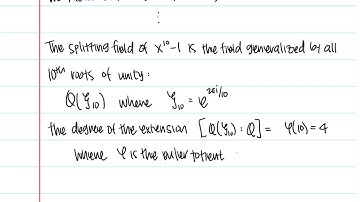 ⋮
The splitting field of x¹⁰-1 is the field generalized by all
10th roots of unity:
Q(ζ₁₀) where ζ₁₀ = e^(2πi/10)
the degree of the extension [Q(ζ₁₀):Q] = φ(10) = 4
where φ is the euler totient